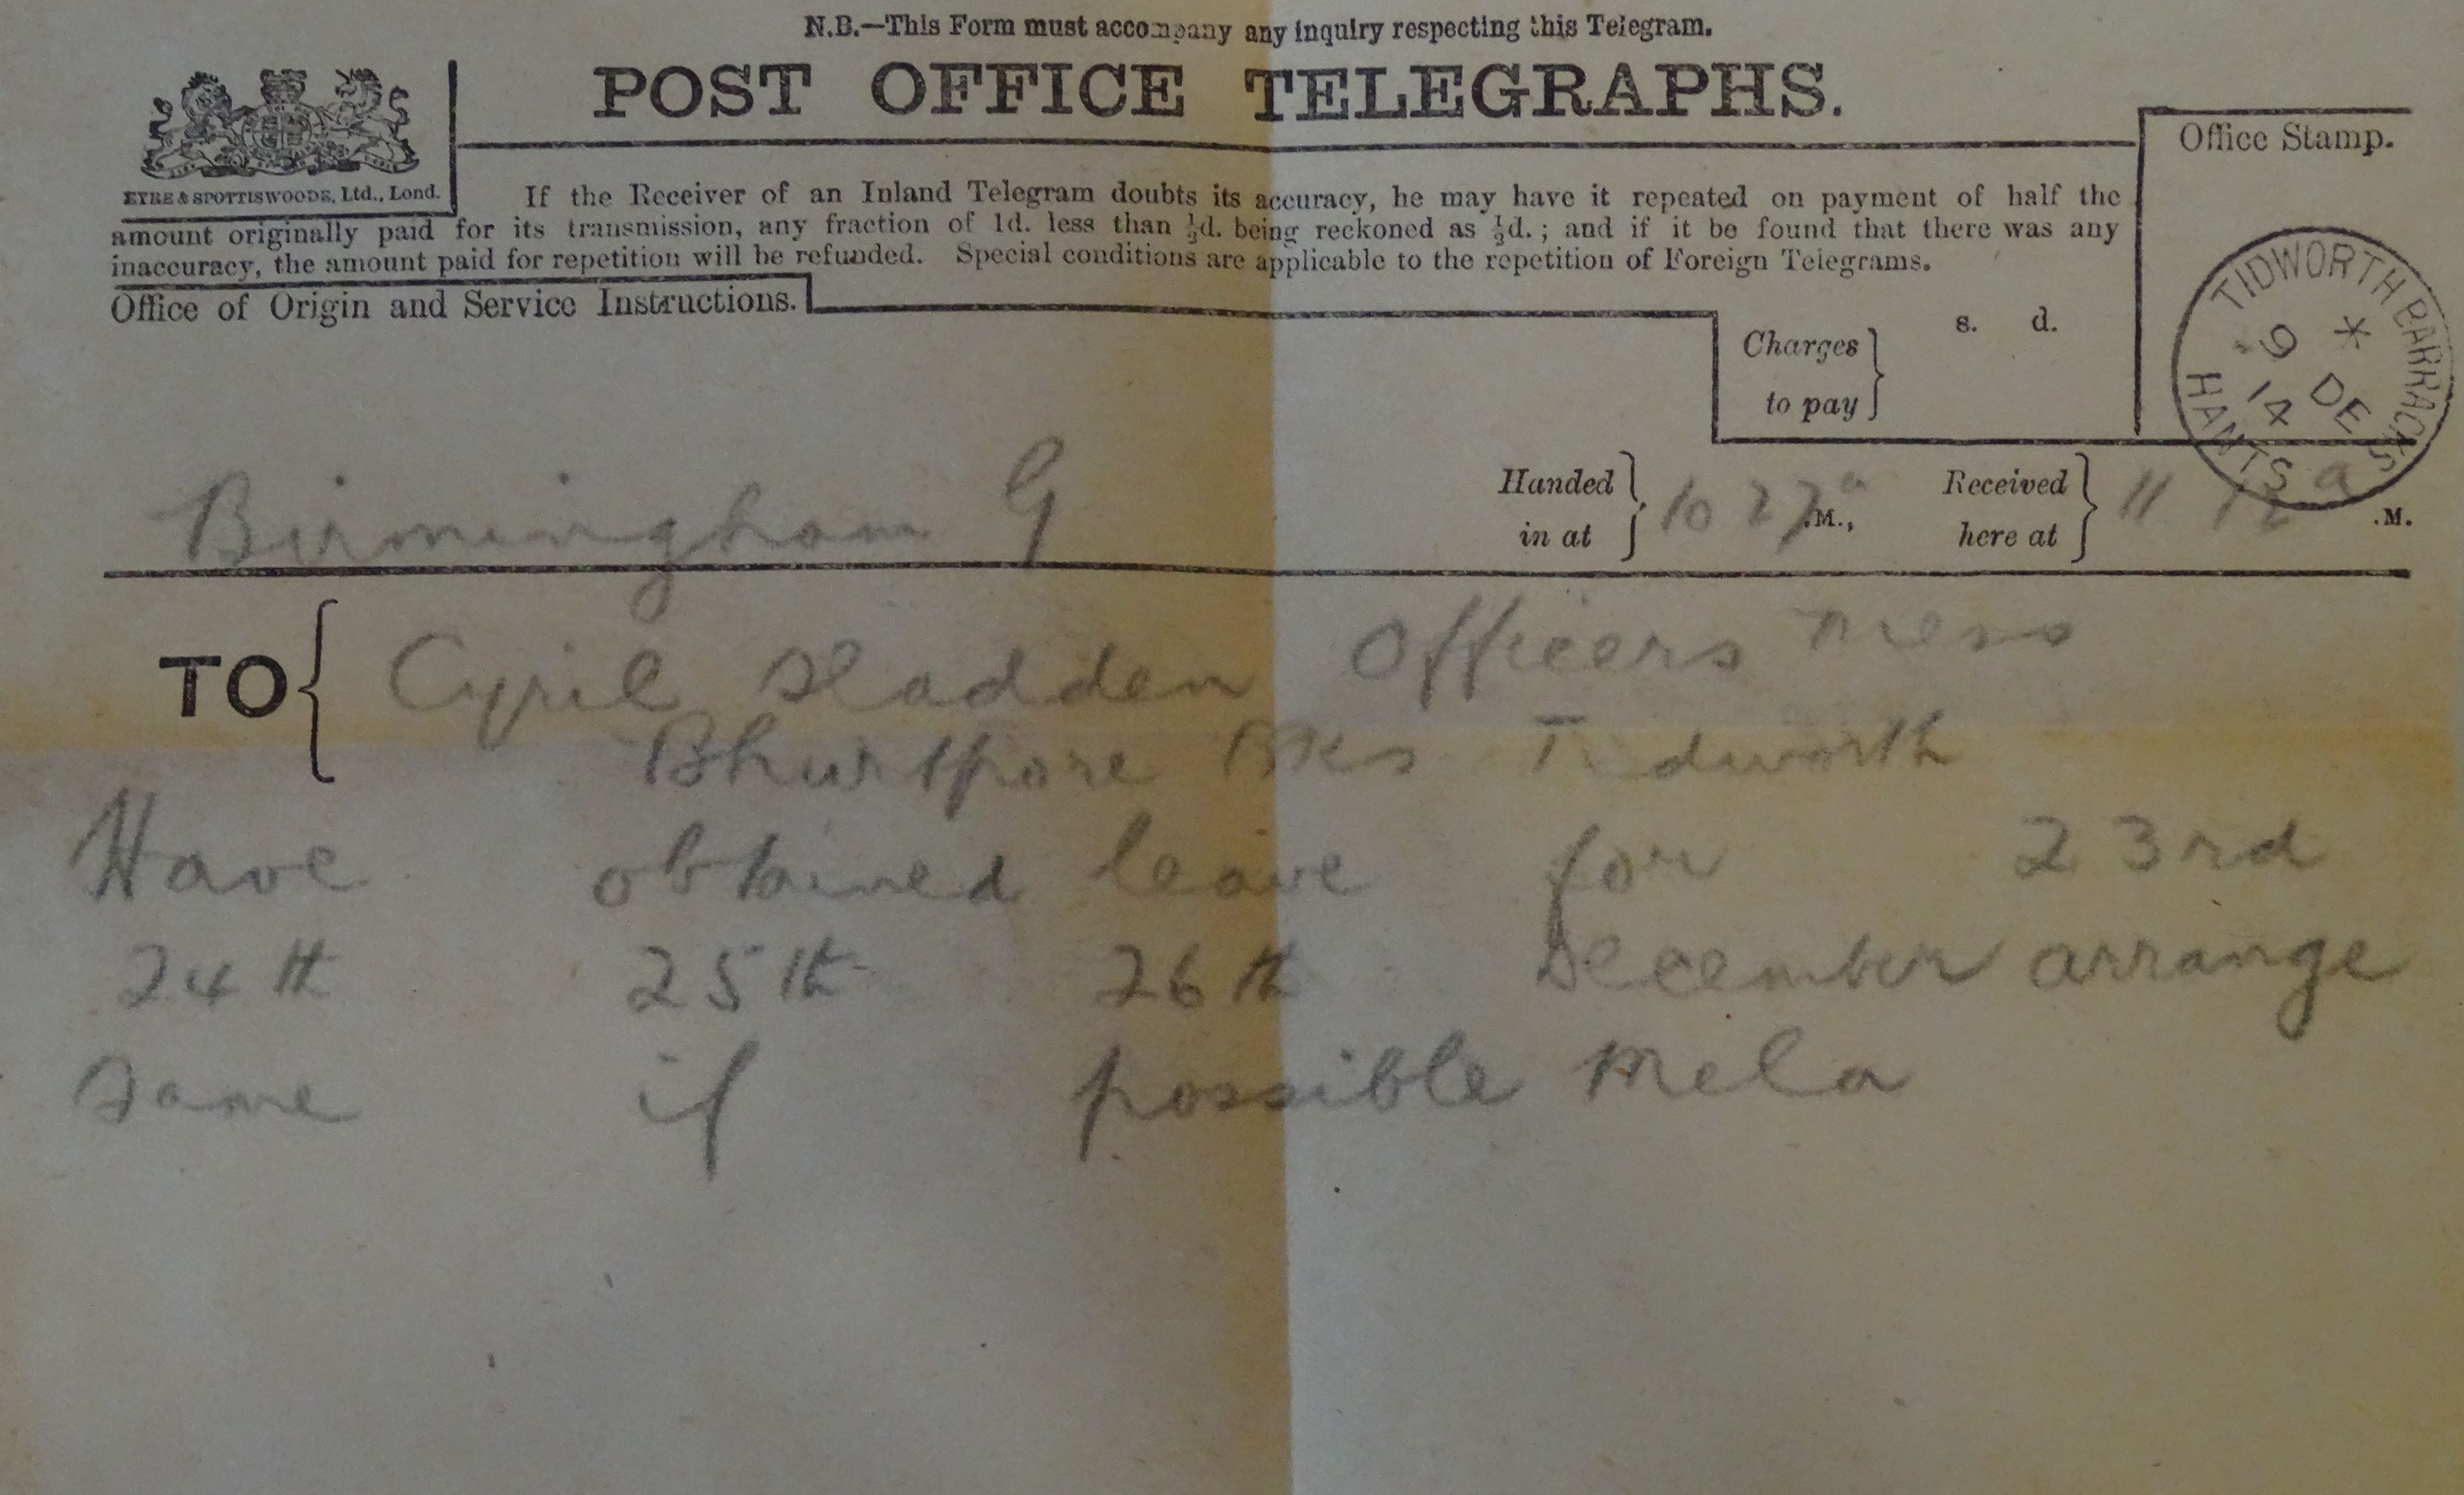 N.B.—This Form must accompany any inquiry respecting this Telegram.
POST OFFICE TELEGRAPHS.
Office Stamp.
EYRE & SPOTTISWOODE, Ltd., Lond.
If the Receiver of an Inland Telegram doubts its accuracy, he may have it repeated on payment of half the
amount originally paid for its transmission, any fraction of 1d. less than ½d. being reckoned as ½d.; and if it be found that there was any
inaccuracy, the amount paid for repetition will be refunded. Special conditions are applicable to the repetition of Foreign Telegrams.
Office of Origin and Service Instructions.
Charges to pay s. d.
TIDWORTH BARRACKS HANTS
* 9 DE 14
Birmingham G
Handed in at 10 27 a .M.,
Received here at 11 12 a .M.
TO Cyril Sladden Officers Mess
Bhurtpore Bks Tidworth
Have obtained leave for 23rd
24th 25th 26th December arrange
same if possible Mela